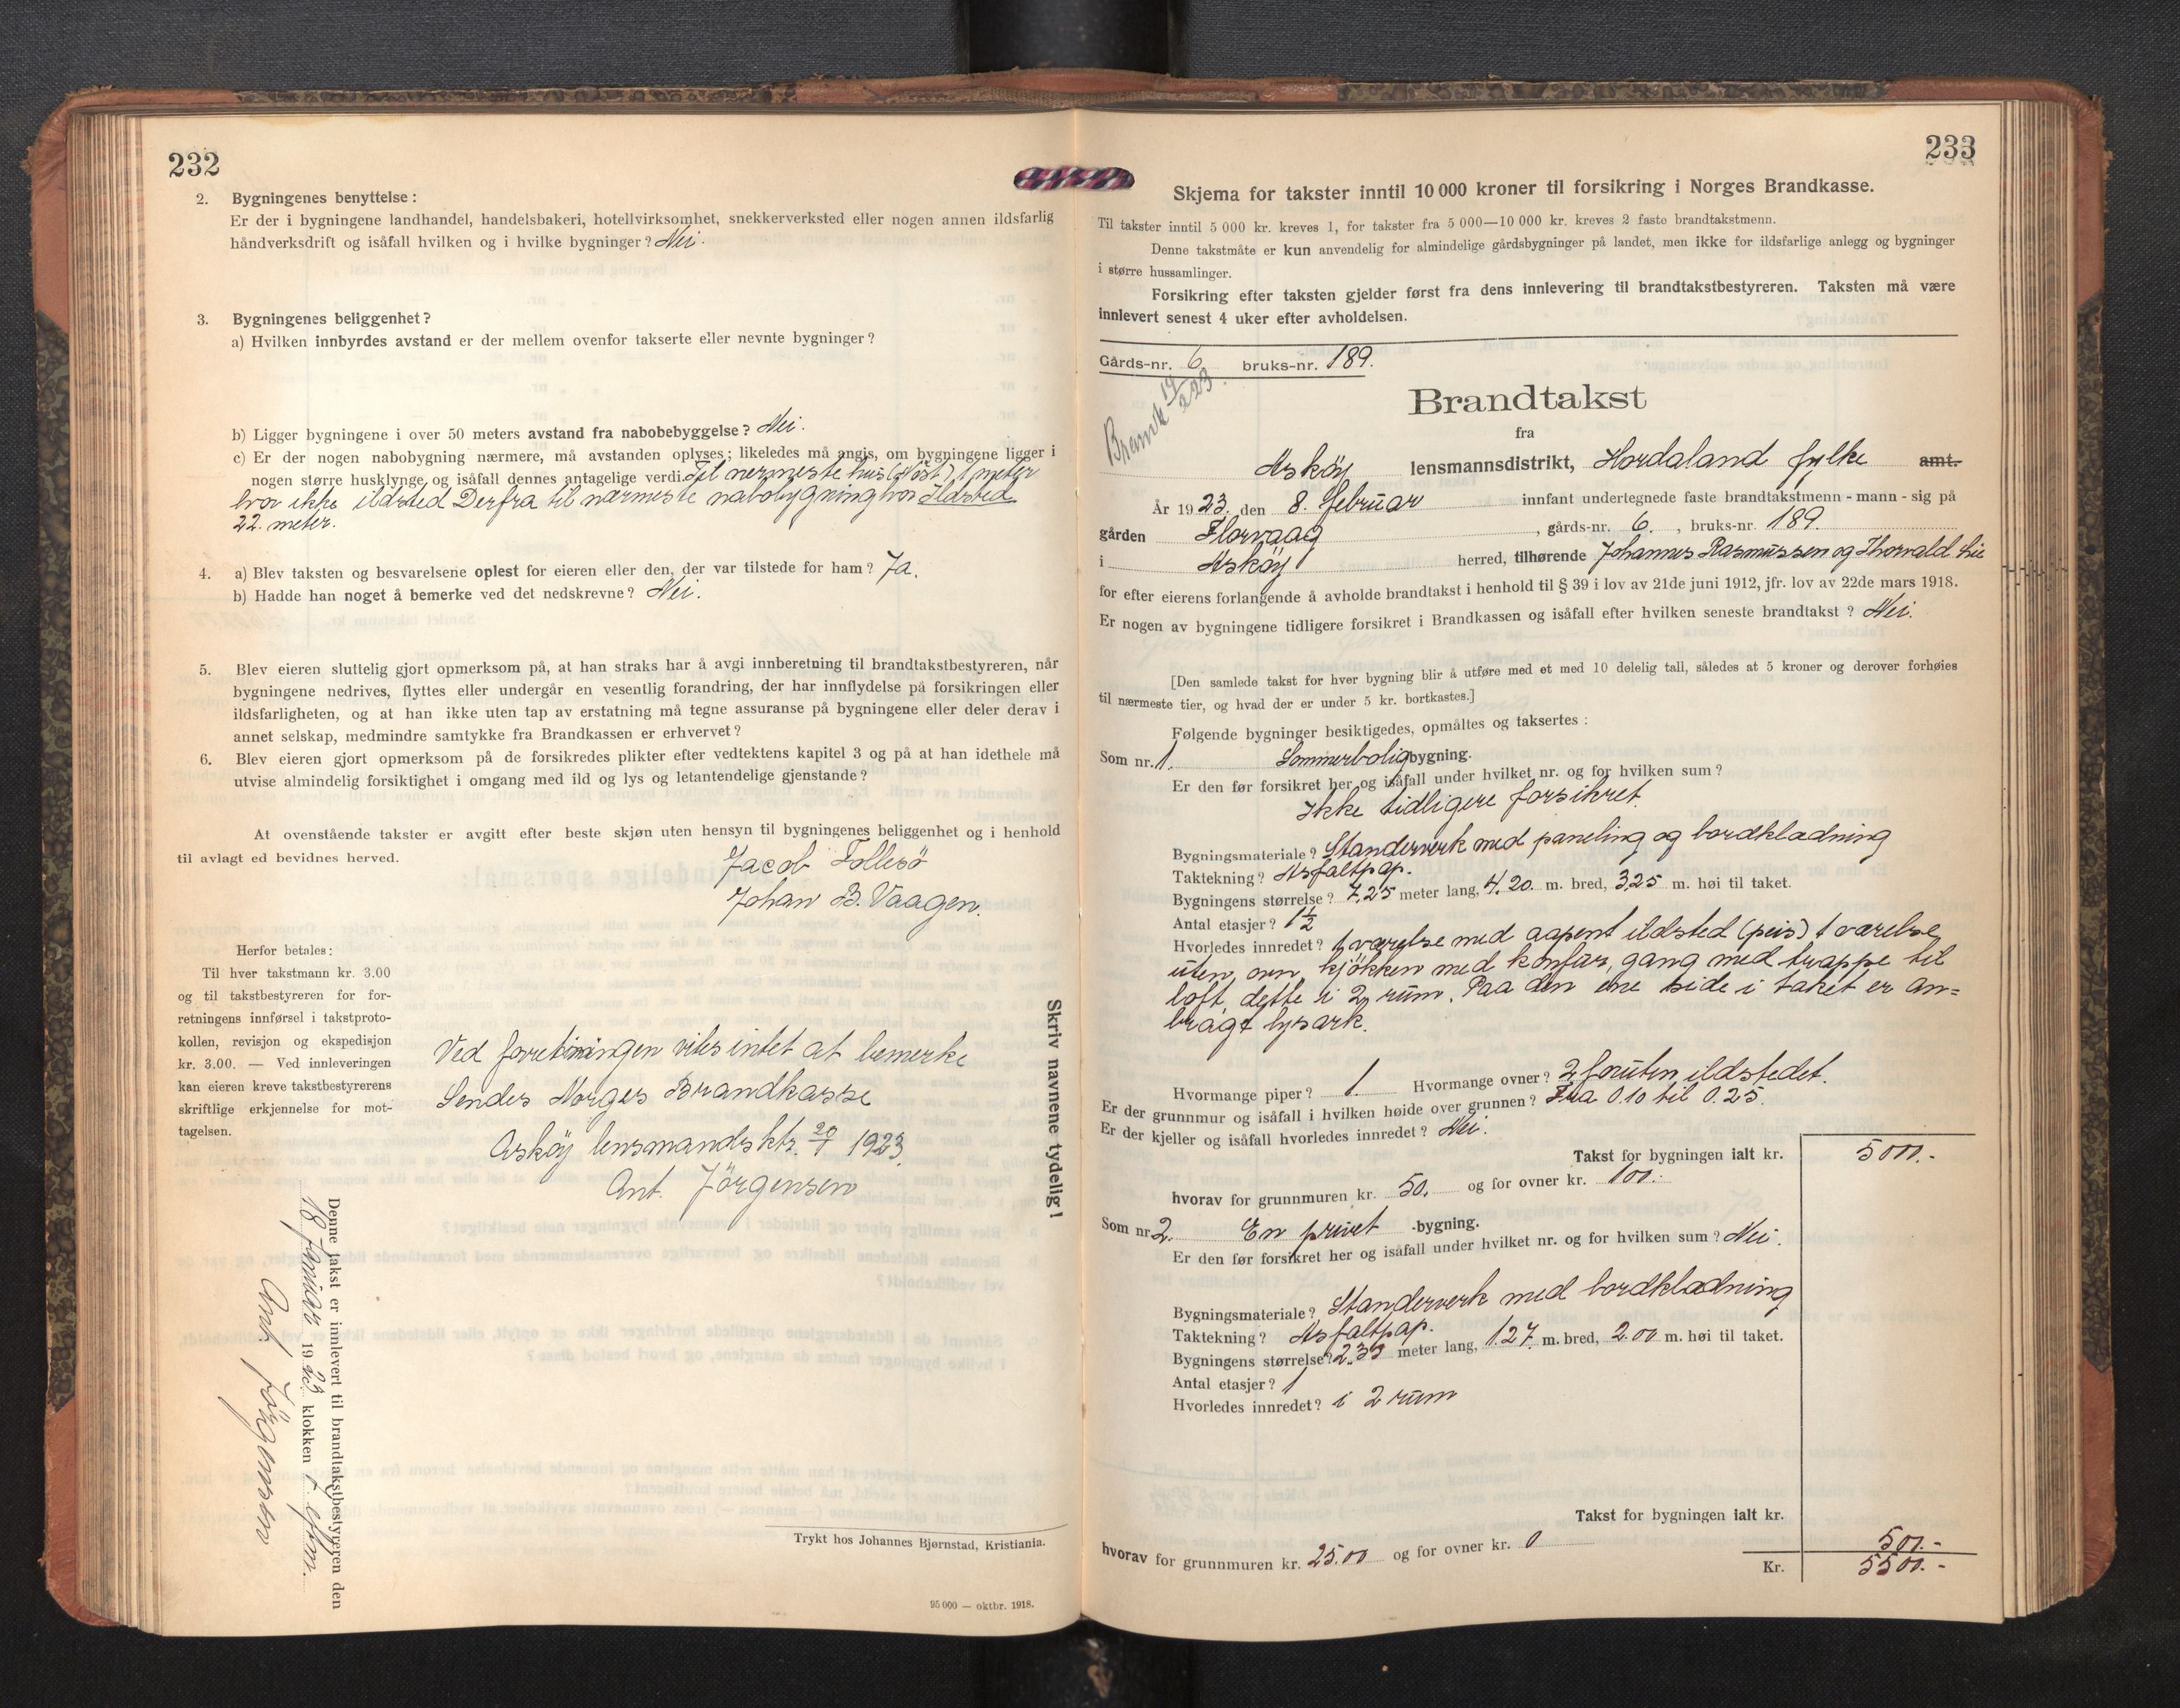 232
2. Bygningenes benyttelse :
Er der i bygningene landhandel, handelsbakeri, hotellvirksomhet, snekkerverksted eller nogen annen ildsfarlig
håndverksdrift og isåfall hvilken og i hvilke bygninger ? Nei.
3. Bygningenes beliggenhet ?
a) Hvilken innbyrdes avstand er der mellem ovenfor takserte eller nevnte bygninger ?
b) Ligger bygningene i over 50 meters avstand fra nabobebyggelse ? Nei.
c) Er der nogen nabobygning nærmere, må avstanden oplyses ; likeledes må angis, om bygningene ligger i
nogen større husklynge og isåfall dennes antagelige verdi. Til nærmeste hus (Nöst) 1 meter
hvor ikke ildsted Derfra til nærmeste nabobygning hvor Ildsted
22. meter.
4. a) Blev taksten og besvarelsene oplest for eieren eller den, der var tilstede for ham ? Ja.
b) Hadde han noget å bemerke ved det nedskrevne ? Nei.
5. Blev eieren sluttelig gjort opmerksom på, at han straks har å avgi innberetning til brandtakstbestyreren, når
bygningene nedrives, flyttes eller undergår en vesentlig forandring, der har innflydelse på forsikringen eller
ildsfarligheten, og at han ikke uten tap av erstatning må tegne assuranse på bygningene eller deler derav i
annet selskap, medmindre samtykke fra Brandkassen er erhvervet ?
6. Blev eieren gjort opmerksom på de forsikredes plikter efter vedtektens kapitel 3 og på at han idethele må
utvise almindelig forsiktighet i omgang med ild og lys og letantendelige gjenstande ?
At ovenstående takster er avgitt efter beste skjøn uten hensyn til bygningenes beliggenhet og i henhold
til avlagt ed bevidnes herved.
Jacob Follesö
Johan B. Vaagen.
Herfor betales :
Til hver takstmann kr. 3.00
og til takstbestyreren for for-
retningens innførsel i takstproto-
kollen, revisjon og ekspedisjon
kr. 3.00. — Ved innleveringen
kan eieren kreve takstbestyrerens
skriftlige erkjennelse for mot-
tagelsen.
Ved forretningen vites intet at bemerke
Sendes Norges Brandkasse
Asköy lensmandsktr. 20/1 1923.
Ant. Jörgensen
Skriv navnene tydelig !
Denne takst er innlevert til brandtakstbestyreren den
18 januar 1923 klokken 1 eftm.
Ant Jörgensen
Trykt hos Johannes Bjørnstad, Kristiania.
95 000 — oktbr. 1918.
233
Skjema for takster inntil 10 000 kroner til forsikring i Norges Brandkasse.
Til takster inntil 5 000 kr. kreves 1, for takster fra 5 000—10 000 kr. kreves 2 faste brandtakstmenn.
Denne takstmåte er kun anvendelig for almindelige gårdsbygninger på landet, men ikke for ildsfarlige anlegg og bygninger
i større hussamlinger.
Forsikring efter taksten gjelder først fra dens innlevering til brandtakstbestyreren. Taksten må være
innlevert senest 4 uker efter avholdelsen.
Gårds-nr. 6 bruks-nr. 189.
Brandtakst
fra
Asköy lensmannsdistrikt, Hordaland fylke amt.
År 1923. den 8. februar innfant undertegnede faste brandtakstmenn - mann - sig på
gården Florvaag , gårds-nr. 6. , bruks-nr. 189.
i Asköy herred, tilhørende Johannes Rasmussen og Thorvald Lie
for efter eierens forlangende å avholde brandtakst i henhold til § 39 i lov av 21de juni 1912, jfr. lov av 22de mars 1918.
Er nogen av bygningene tidligere forsikret i Brandkassen og isåfall efter hvilken seneste brandtakst ? Nei.
[Den samlede takst for hver bygning blir å utføre med et med 10 delelig tall, således at 5 kroner og derover forhøies
til nærmeste tier, og hvad der er under 5 kr. bortkastes.]
Følgende bygninger besiktigedes, opmåltes og taksertes :
Som nr. 1. Sommerbolig bygning.
Er den før forsikret her og isåfall under hvilket nr. og for hvilken sum ?
Ikke tidligere forsikret.
Bygningsmateriale ? Standerverk med paneling og bordklædning
Taktekning ? Asfaltpap.
Bygningens størrelse ? 7,25 meter lang, 4.20. m. bred, 3,25 m. høi til taket.
Antal etasjer ? 1½
Hvorledes innredet ? 1 værelse med aapent ildsted (peis) 1 værelse
uten ovn, kjökken med komfur, gang med trappe til
loft, dette i 2 rum. Paa den ene side i taket er an=
bragt lysark.
Hvormange piper ? 1. Hvormange ovner ? 2 foruten ildstedet.
Er der grunnmur og isåfall i hvilken høide over grunnen ? Fra 0.10 til 0.25.
Er der kjeller og isåfall hvorledes innredet ? Nei.
Takst for bygningen ialt kr. 5000.-
hvorav for grunnmuren kr. 50. og for ovner kr. 100.-
Som nr 2. En privet -bygning.
Er den før forsikret her og isåfall under hvilket nr. og for hvilken sum ? Nei.
Bygningsmateriale ? Standerverk med bordklædning
Taktekning ? Asfaltpap.
Bygningens størrelse ? 2.33 meter lang, 1.27. m. bred, 2.00 m. høi til taket.
Antal etasjer ? 1
Hvorledes innredet ? i 2 rum
Takst for bygningen ialt kr. 500.-
hvorav for grunnmuren kr. 25.00 og for ovner kr. 0
Kr. 5500.-